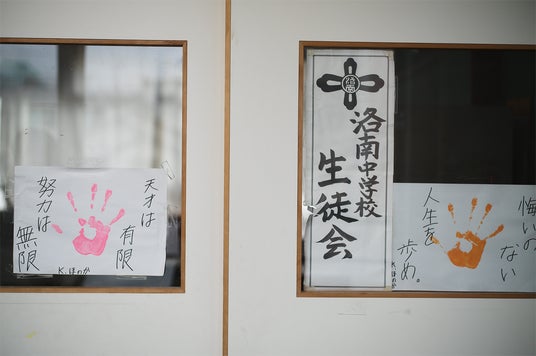 天才は
有限
努力は
無限
K.ほのか
洛南中学校
生徒会
悔いの
ない
人生を
歩め。
K.ほのか